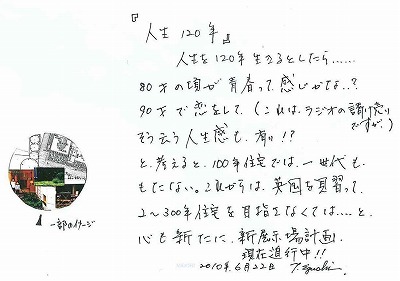 『人生120年』
人生を120年生きるとしたら……
80才の頃が青春って感じかな..?
90才で恋をして、(これは、ラジオの請け売りですが、)
そう云う人生感も、有り!?
と、考えると、100年住宅では、一世代も、
もたない。これからは、英国を見習って、
2〜300年住宅を目指さなくては……と、
心も新たに、新展示場計画、
現在進行中!!
2010年6月22日
一部のイメージ